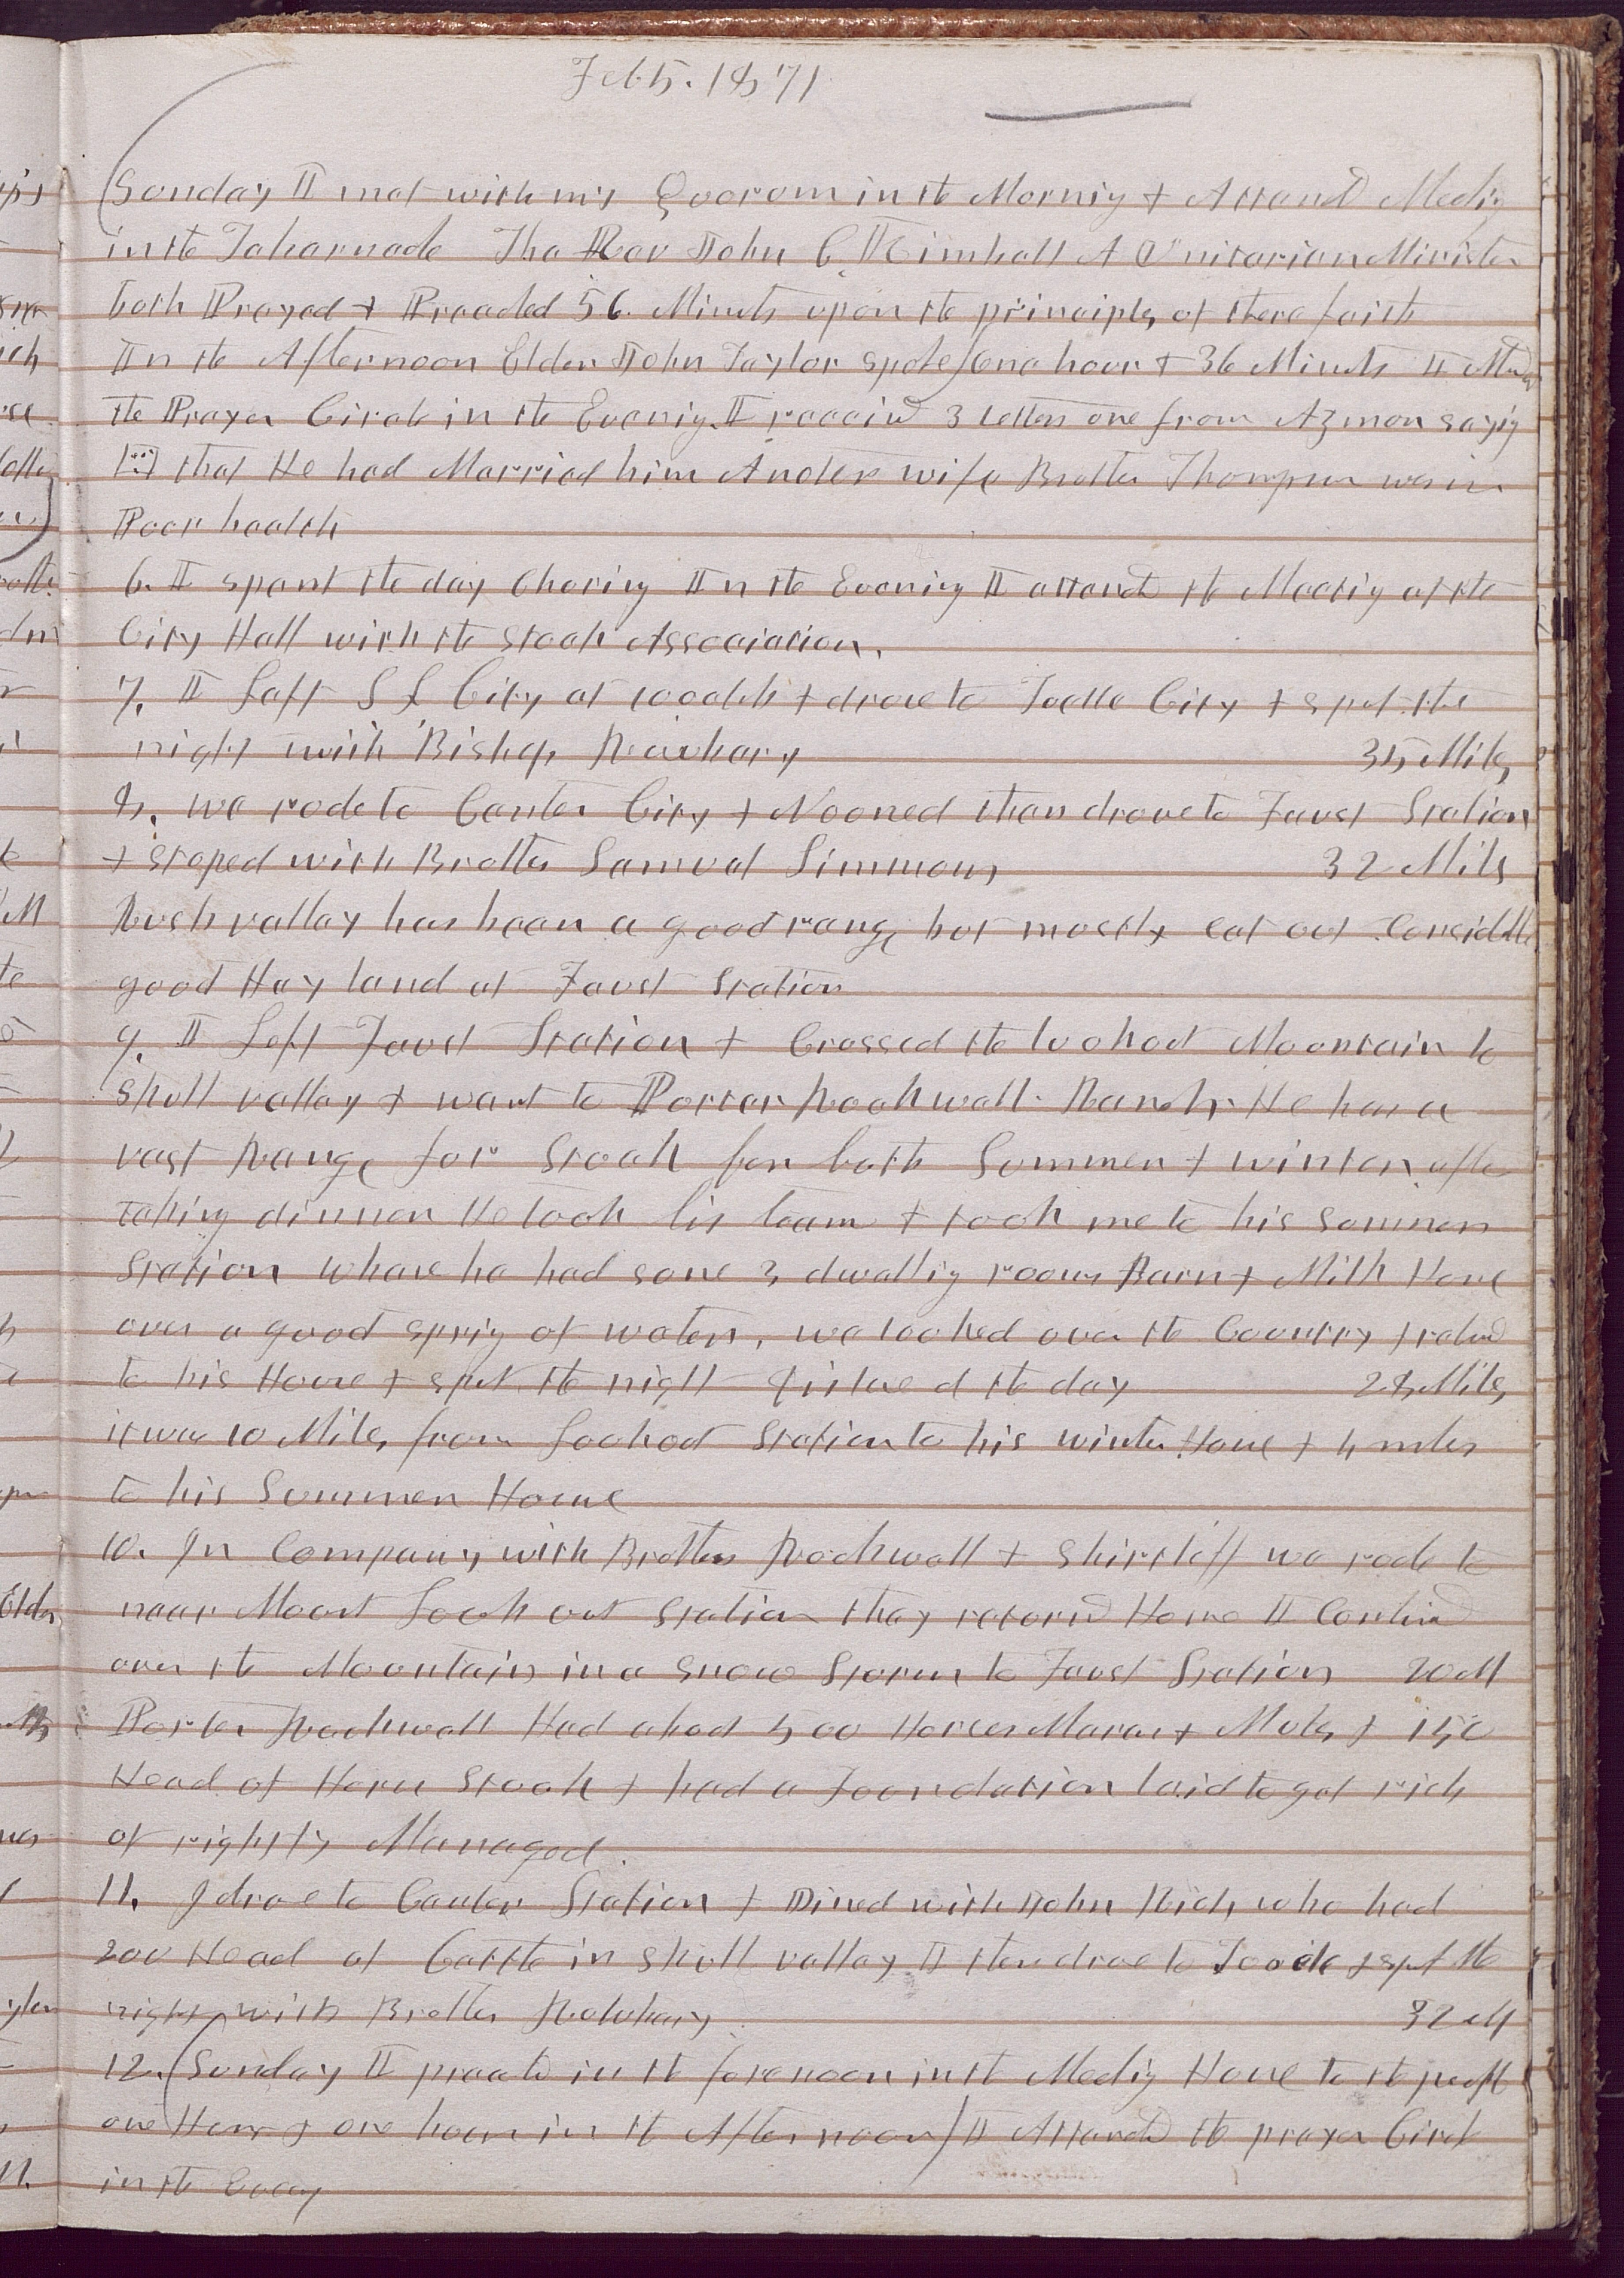 Feb 5. 1871
Sunday I met with my Quorum in the Morning & Attend Meeting
in the Tabernacle The Rev John C. Kimball A Unitarian Minister
both Prayed & Preached 56. Minuts upon the principles of there faith
In the Afternoon Elder John Taylor spoke one hour & 36 Minuts I Met
the Prayer Circle in the Evening. I receivd 3 letters one from Azmon saying
that He had Married him Another wife Brother Thompson was in
Poor health
6. I spent the day Choring In the Evening I attend the Meeting at the
City Hall with the Stock Association.
7. I Left S L City at 10 oclok & drove to Toelle City & spent the
night with Bishop Rowbery 35 Miles
8. we rode to Center City & Nooned then drove to Faust Station
& stoped with Brother Samuel Simmons 32 Miles
Rush valley has been a good range but mostly eat out Considble
good Hay land at Faust Station
9. I Left Faust Station & Crossed the Lookout Mountain to
Skull valley & went to Porter Rockwell Ranch He has a
vast Range for Stock for both Summer & winter after
taking dinner He took his team & took me to his summer
Station whare he had some 3 dwelling rooms Barn & Milk House
over a good spring of water, we looked over the Country & retund
to his House & spent the night distance of the day 28 Miles
it was 10 Miles from Lookout Station to his winter House & 4 miles
to his Summer House
10. In Company with Brothers Rockwell & Shirtliff we rode to
near Mount Look out Station they returnd Home I Contind
over the Mountain in a Snow Storm to Faust Station 20 M
Porter Rockwell Had about 500 Horses Mares & Mules & 150
Head of Horn Stock & had a Foundation laid to get rich
of rightly Managed.
11. I drove to Center Station & Dined with John Rich, who had
200 Head of Cattle in Skull valley I then drove to Tooele & spt the
night with Brother Rowbery 32 M
12. Sunday I preachd in the forenoon in the Meeting House to the people
one Hour & one hour in the Afternoon I Attend the prayer Circle
in the Eveng